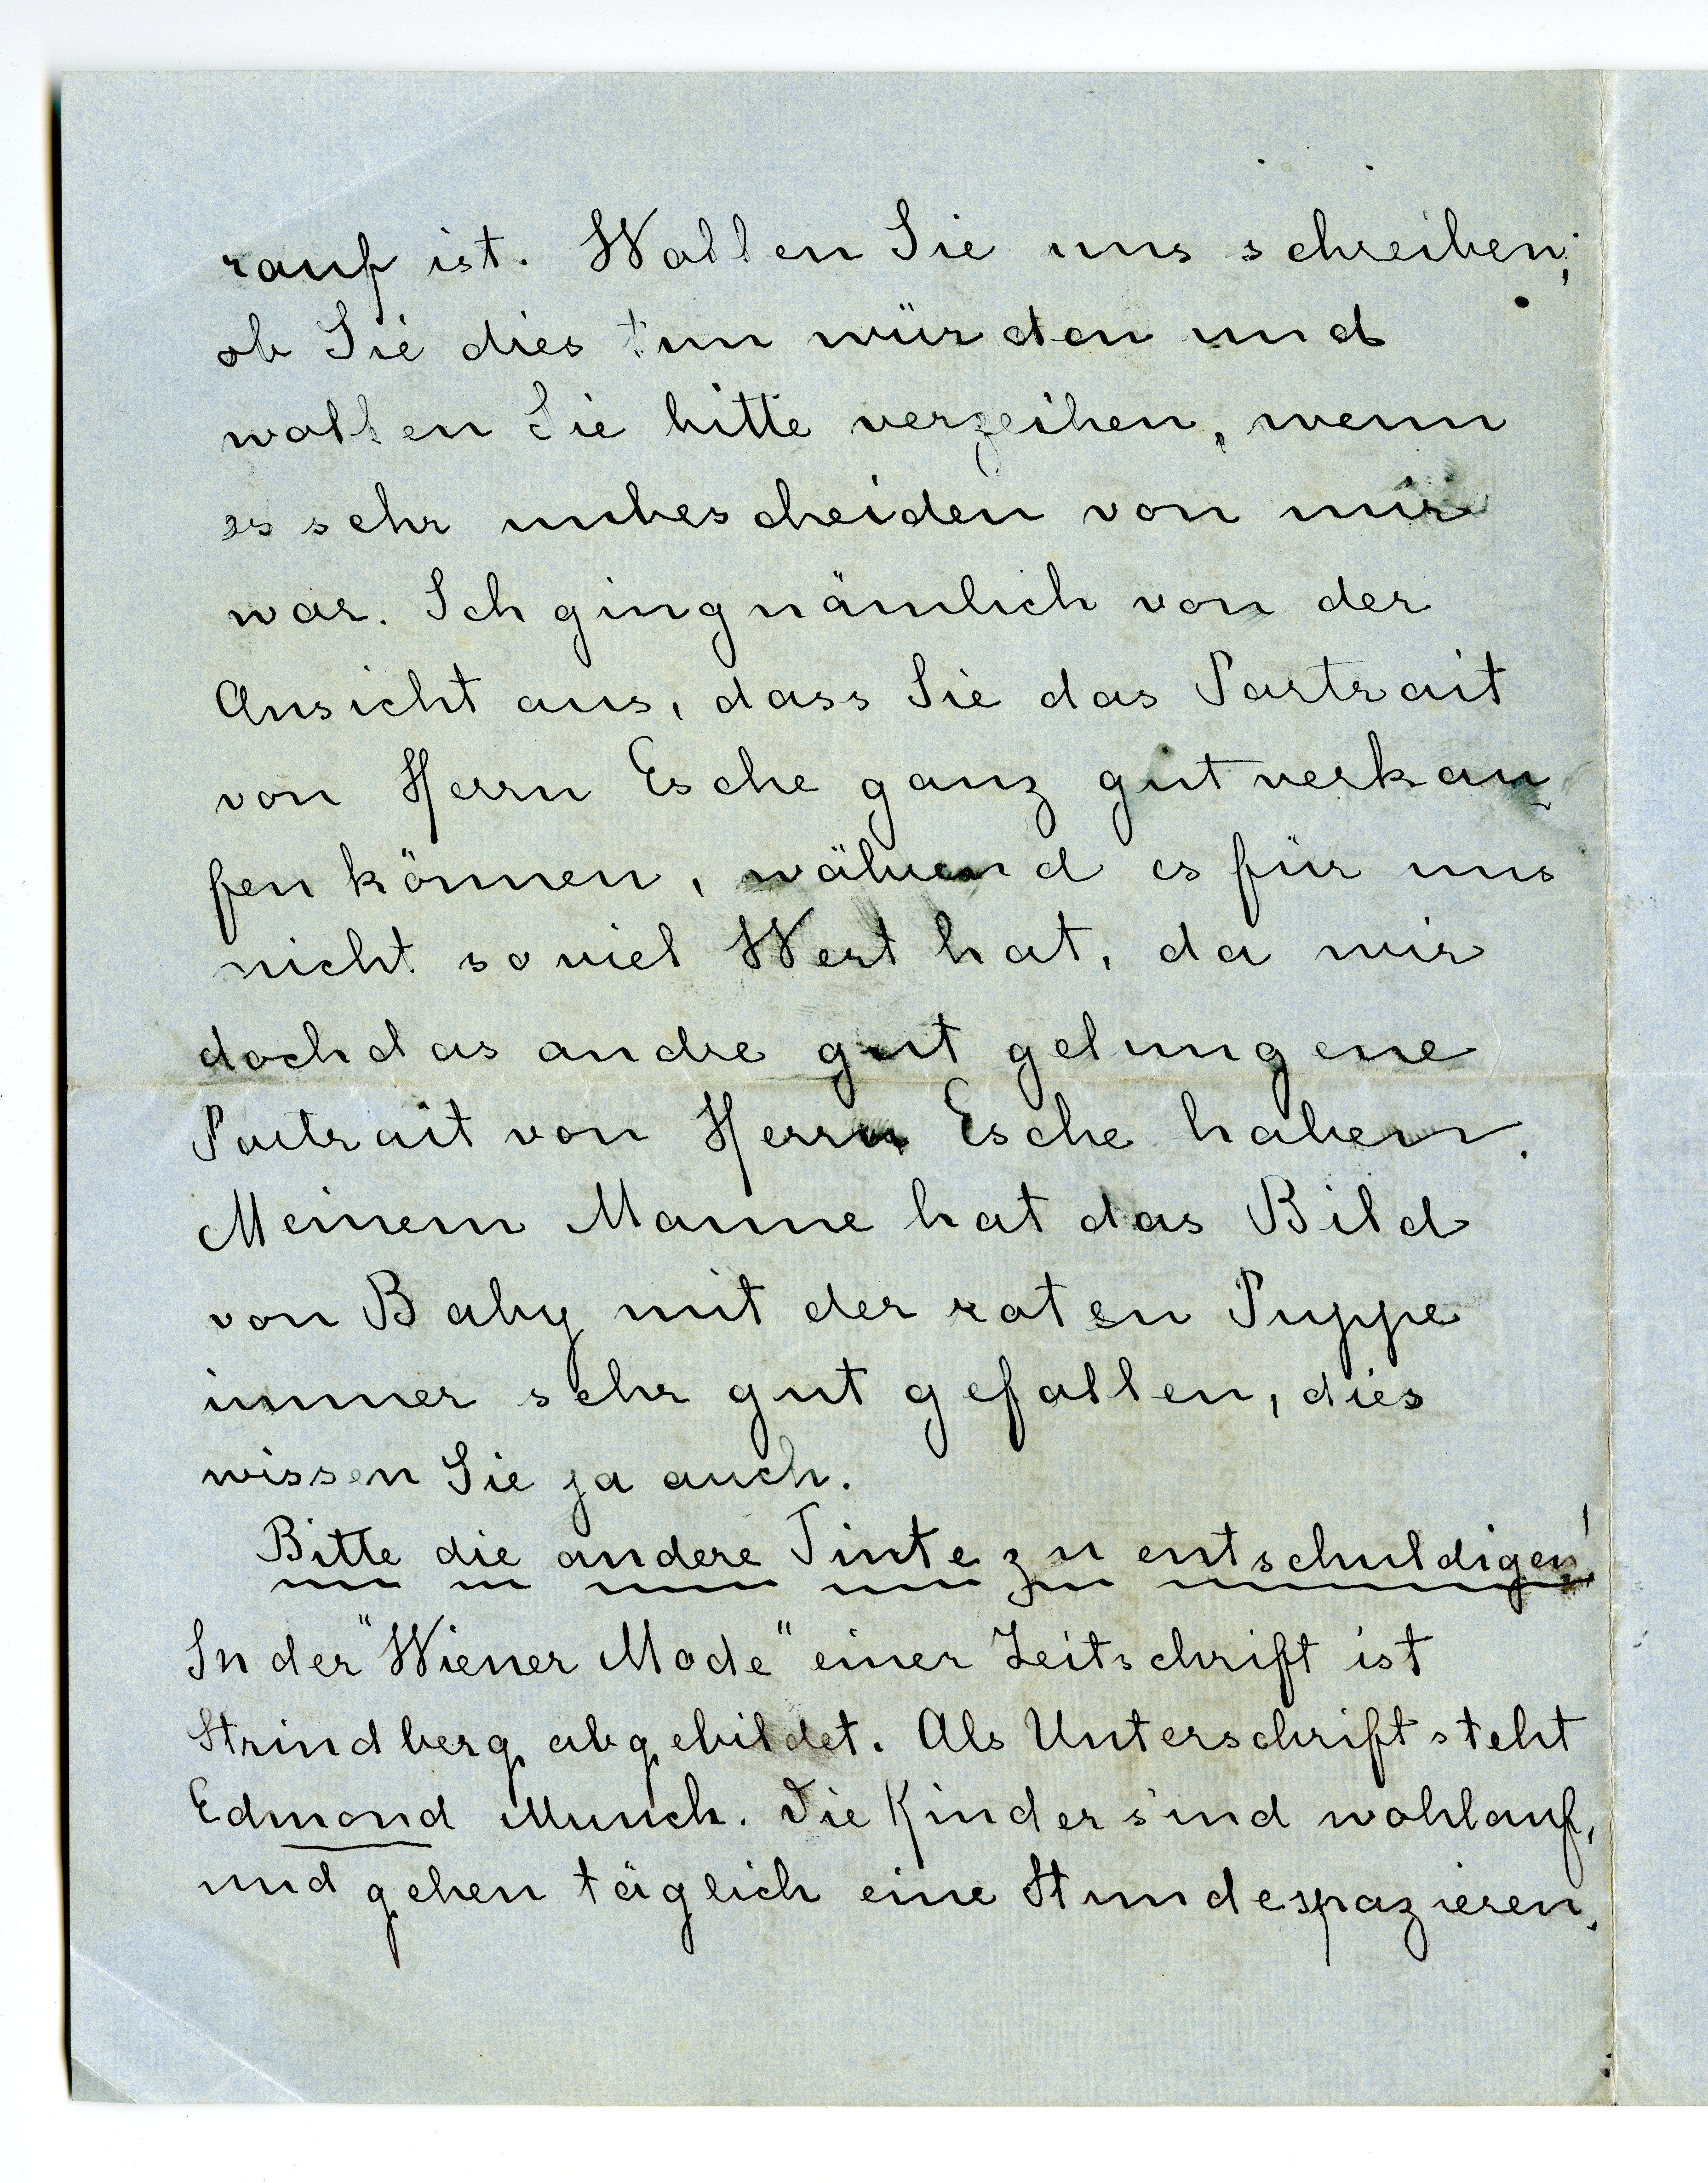 rauf ist. Wollen Sie uns schreiben,
ob Sie dies tun würden und
wollen Sie bitte verzeihen, wenn
es sehr unbescheiden von mir
war. Ich ging nämlich von der
Ansicht aus, dass Sie das Portrait
von Herrn Esche ganz gut verkau-
fen können, während es für uns
nicht soviel Wert hat, da wir
doch das andre gut gelungene
Portrait von Herrn Esche haben.
Meinem Manne hat das Bild
von Baby mit der roten Puppe
immer sehr gut gefallen, dies
wissen Sie ja auch.
Bitte die andere Tinte zu entschuldigen!
In der "Wiener Mode" einer Zeitschrift ist
Strindberg abgebildet. Als Unterschrift steht
Edmond Munch. Die Kinder sind wohlauf,
und gehen täglich eine Stunde spazieren.